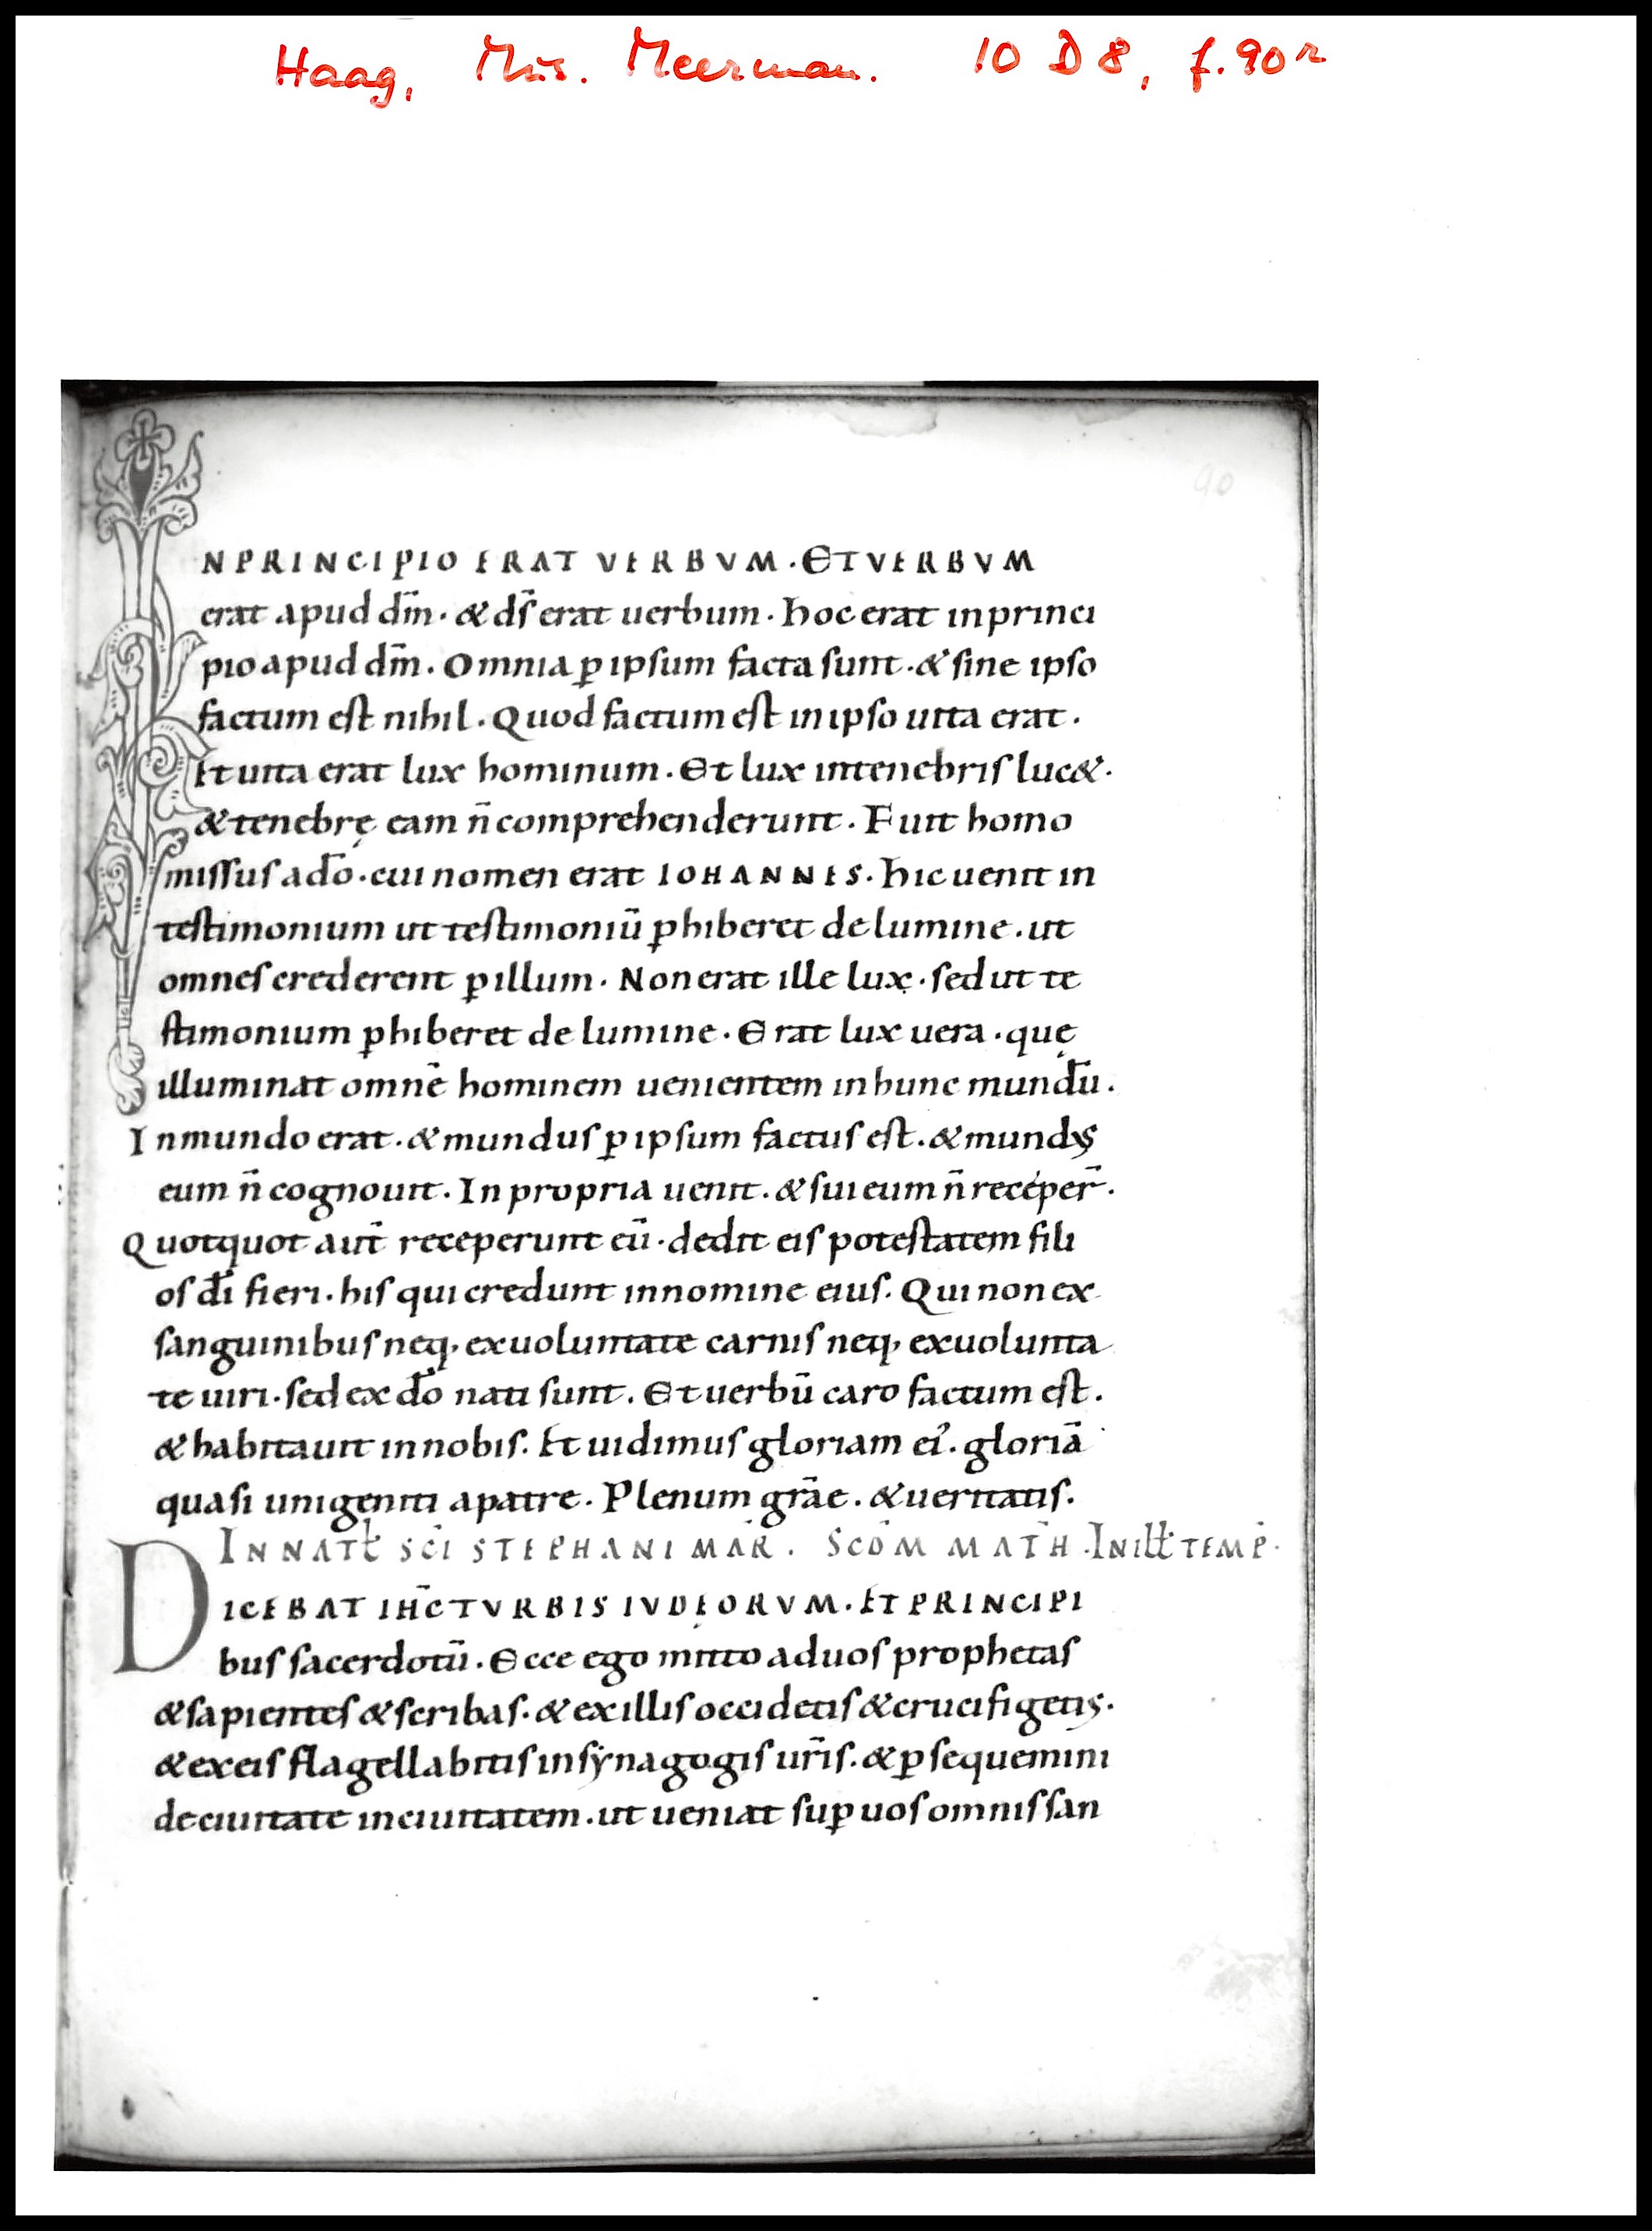 Haag, Mus. Meerman. 10 D 8, f. 90r
90
IN PRINCIPIO ERAT VERBVM · ET VERBVM
erat apud dm̄ · & ds̄ erat uerbum · hoc erat in princi
pio apud dm̄ · Omnia ꝑ ipsum facta sunt · & sine ipso
factum est nihil · Quod factum est in ipso uita erat ·
Et uita erat lux hominum · Et lux in tenebris luc& ·
& tenebrę eam n̄ comprehenderunt · Fuit homo
missus a do̅ · cui nomen erat IOHANNES · hic uenit in
testimonium ut testimoniū ꝑhiberet de lumine · ut
omnes crederent ꝑ illum · Non erat ille lux · sed ut te
stimonium ꝑhiberet de lumine · Erat lux uera · quę
illuminat omnē hominem uenientem in hunc mundū ·
In mundo erat · & mundus ꝑ ipsum factus est · & mundus
eum n̄ cognouit · In propria uenit · & sui eum n̄ receper̄ ·
Quotquot aut̄ receperunt eū · dedit eis potestatem fili
os dī fieri · his qui credunt in nomine eius · Qui non ex
sanguinibus neq; ex uoluntate carnis neq; ex uolunta
te uiri · sed ex do̅ nati sunt · Et uerbū caro factum est ·
& habitauit in nobis · Et uidimus gloriam ei᾽ · gloriā
quasi unigeniti a patre · Plenum grāe · & ueritatis ·
IN NATL̄ SC̄I STEPHANI MAR̄ · SCDM̄ MATH̄ · IN ILL̄ TEMP̄ ·
DICEBAT IHC̄ TVRBIS IVDĘORVM · ET PRINCIPI
bus sacerdotū · Ecce ego mitto ad uos prophetas
& sapientes & scribas · & ex illis occidetis & crucifigetis ·
& ex eis flagellabitis in synagogis ur̄is · & ꝑsequemini
de ciuitate in ciuitatem · ut ueniat suꝑ uos omnis san